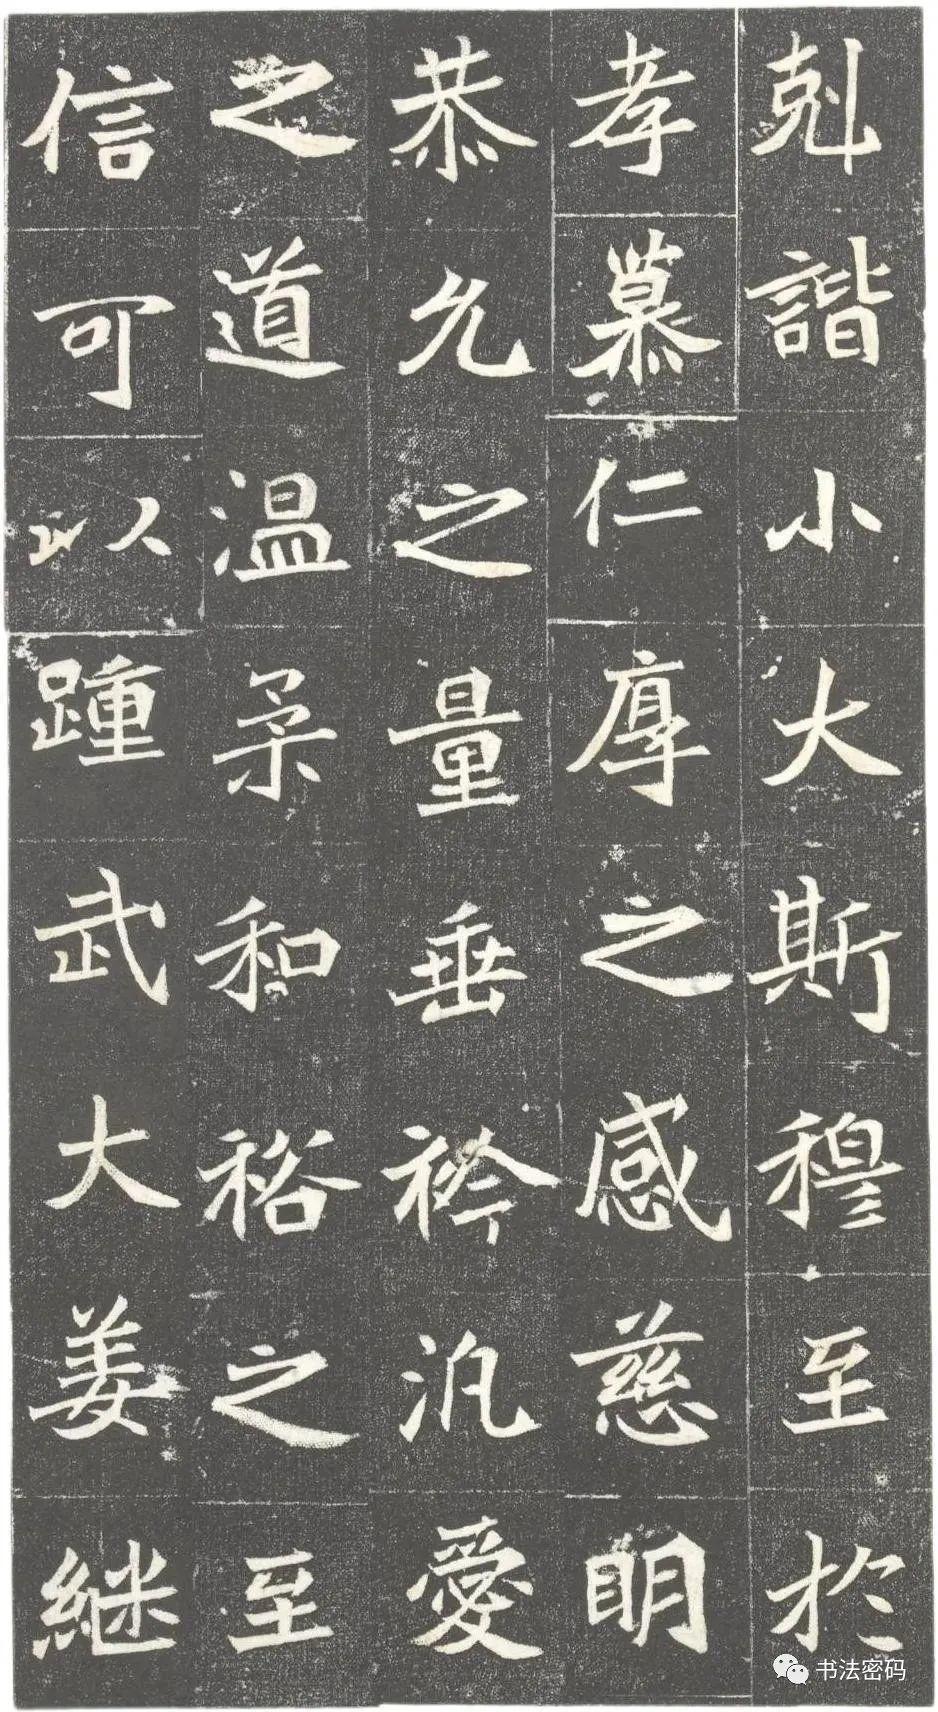 剋諧小大斯穆至於
孝慕仁厚之感慈明
恭允之量垂衿汎愛
之道温柔和裕之至
信可以踵武大姜継
书法密码